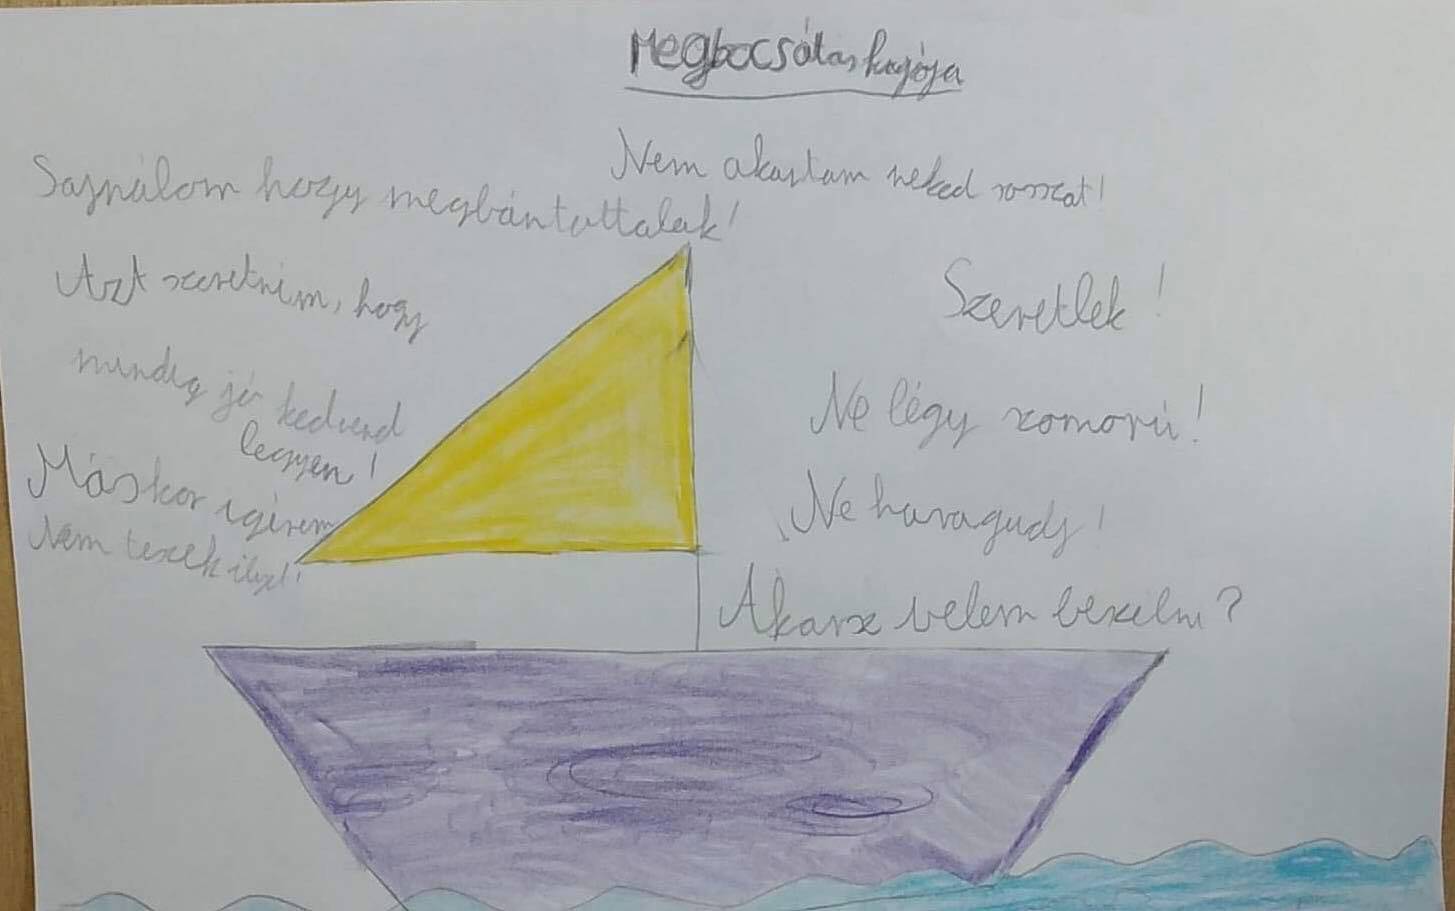 Megbocsátás hajója
Nem akartam neked rosszat!
Sajnálom hogy megbántottalak!
Azt szeretném, hogy
mindig jó kedved
legyen!
Máskor igérem
Nem teszek ilyet!
Szeretlek!
Ne légy szomorú!
Ne haragudj!
Akarsz velem beszélni?